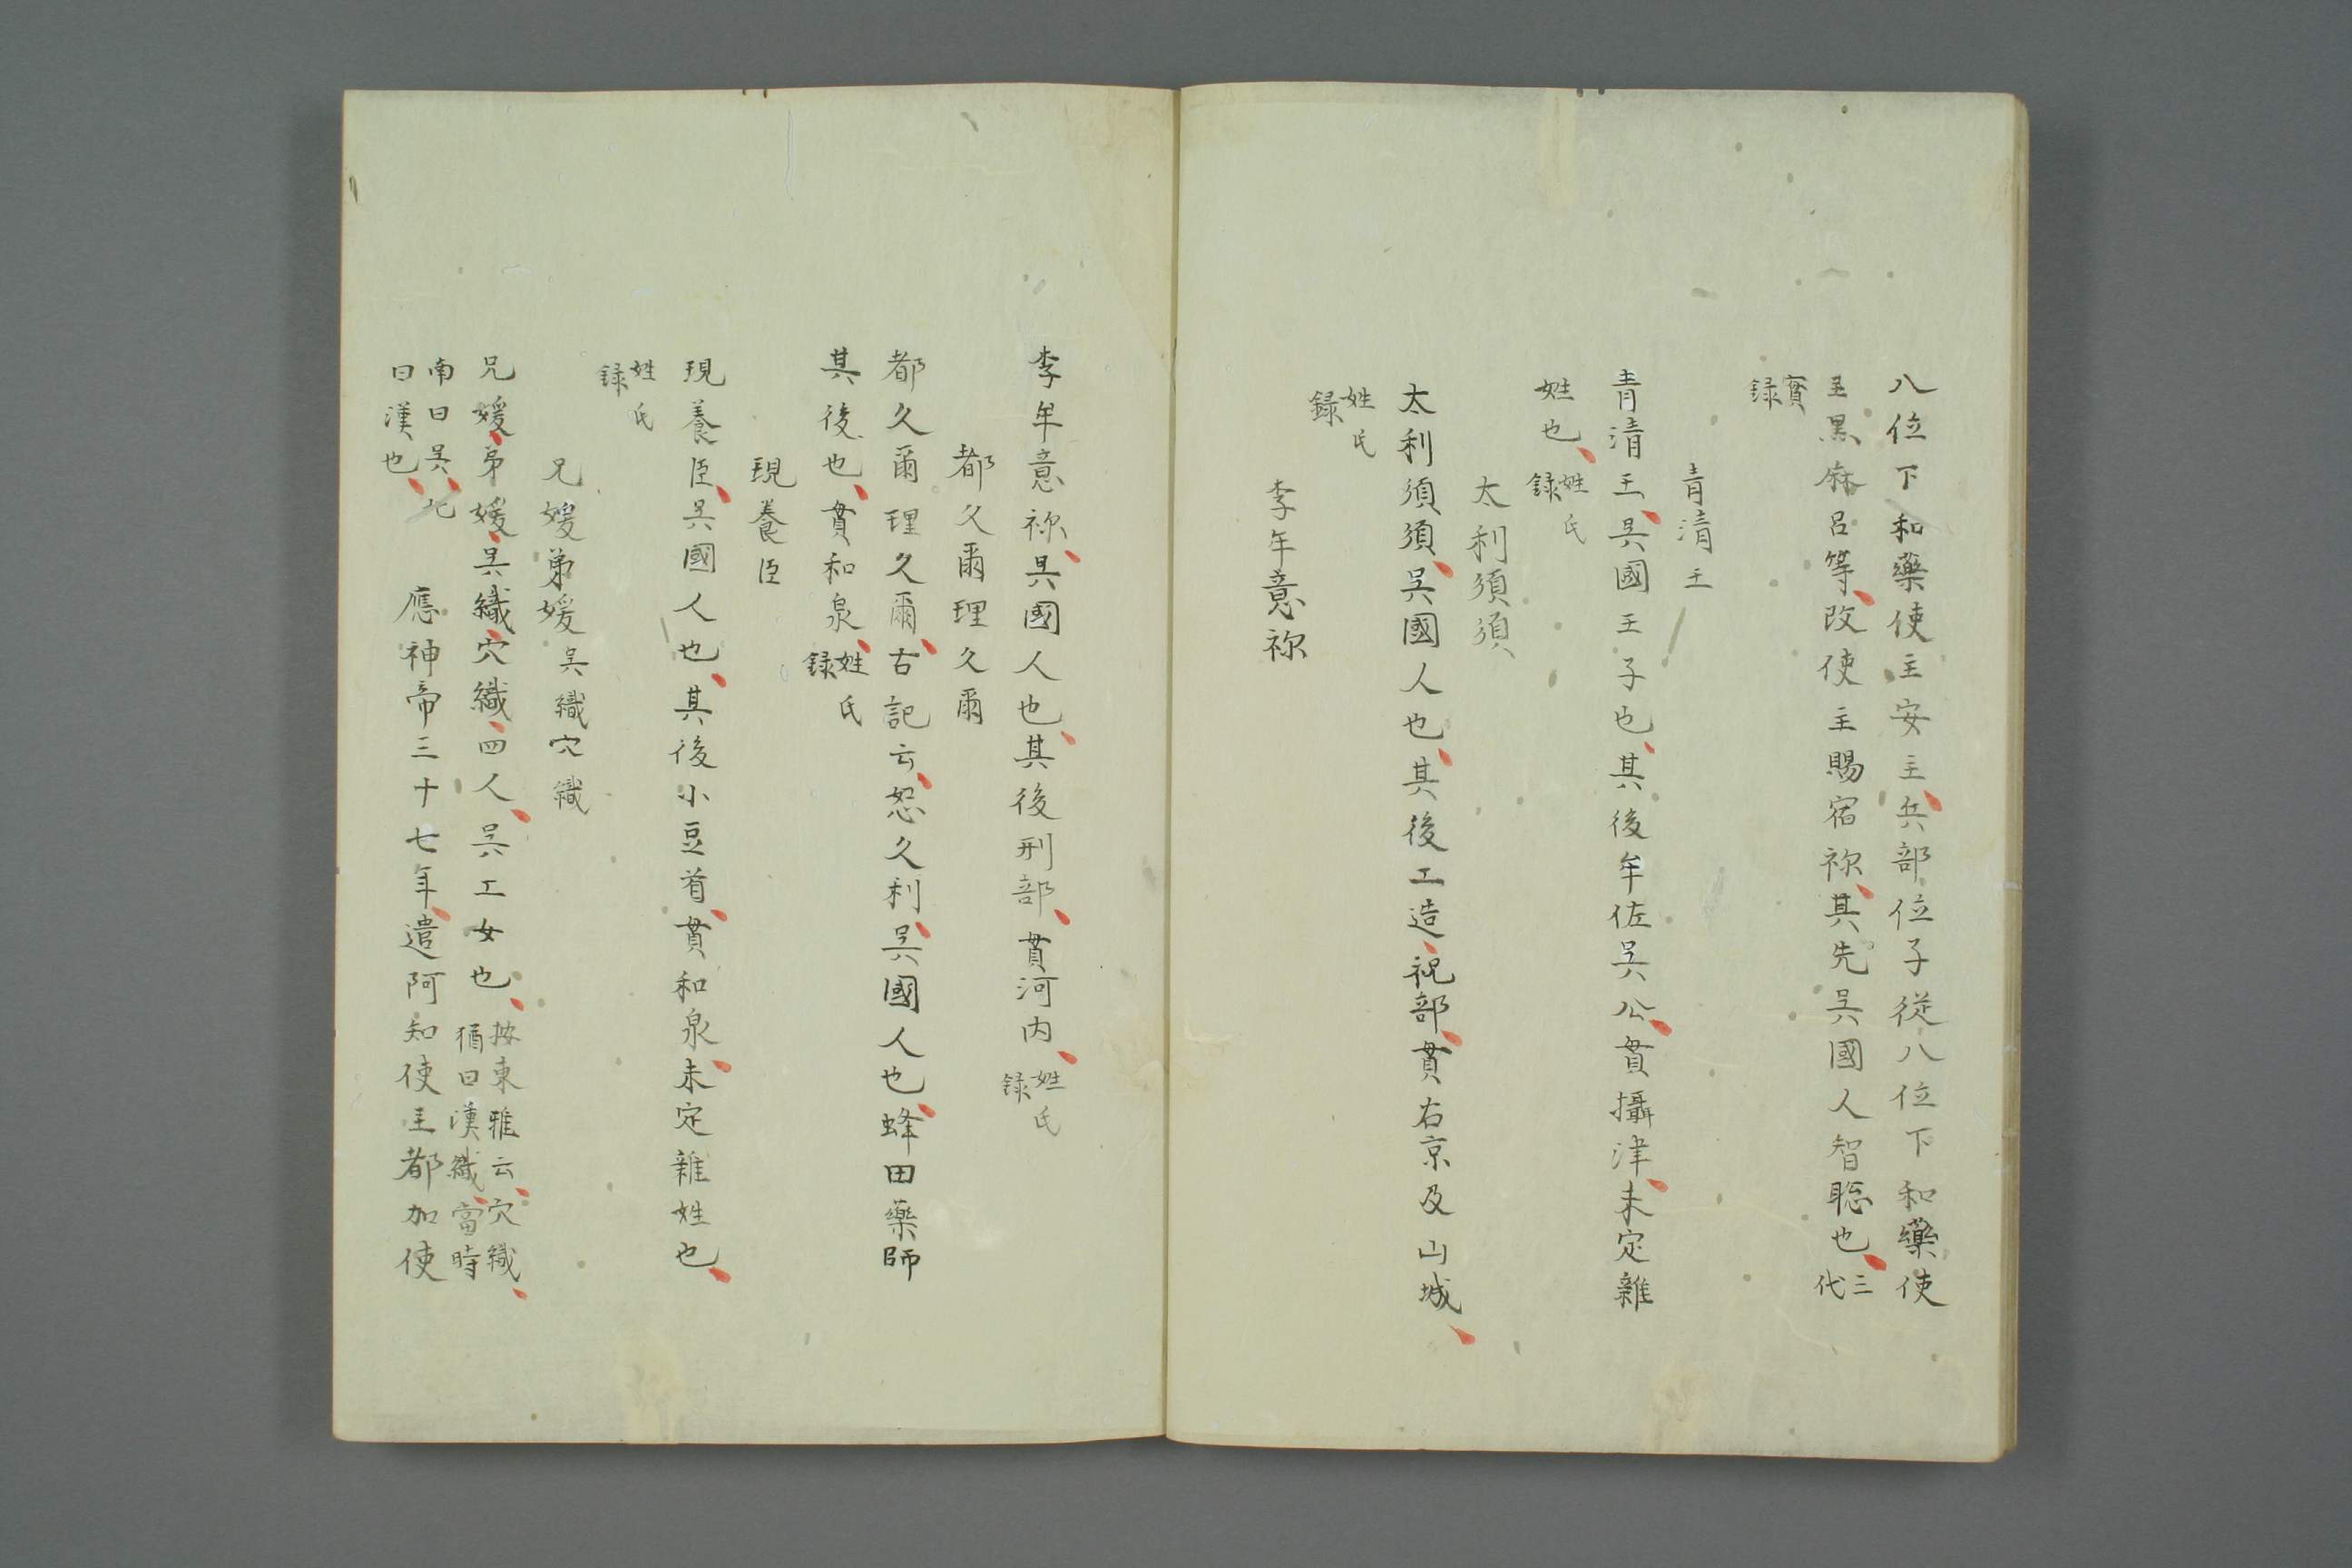 八位下和藥使主安主、兵部位子從八位下和藥使
主黒麻呂等、改使主賜宿祢、其先呉國人智聡也、三代
實録
青清王
青清王、呉國王子也、其後牟佐呉公、貫攝津、未定雜
姓也、姓氏録
太利須須
太利須須、呉國人也、其後工造、祝部、貫右京及山城、
姓氏録
李牟意祢
李牟意祢、呉國人也、其後刑部、貫河内、姓氏録
都久爾理久爾
都久爾理久爾、古記云、怒久利、呉國人也、蜂田藥師
其後也、貫和泉、姓氏録
現養臣
現養臣、呉國人也、其後小豆首、貫和泉、未定雜姓也、
姓氏録
兄媛弟媛呉織穴織
兄媛、弟媛、呉織、穴織、四人、呉工女也、按東雅云、穴織、猶曰漢織、當時
南曰呉、北曰漢也、應神帝三十七年、遣阿知使主都加使